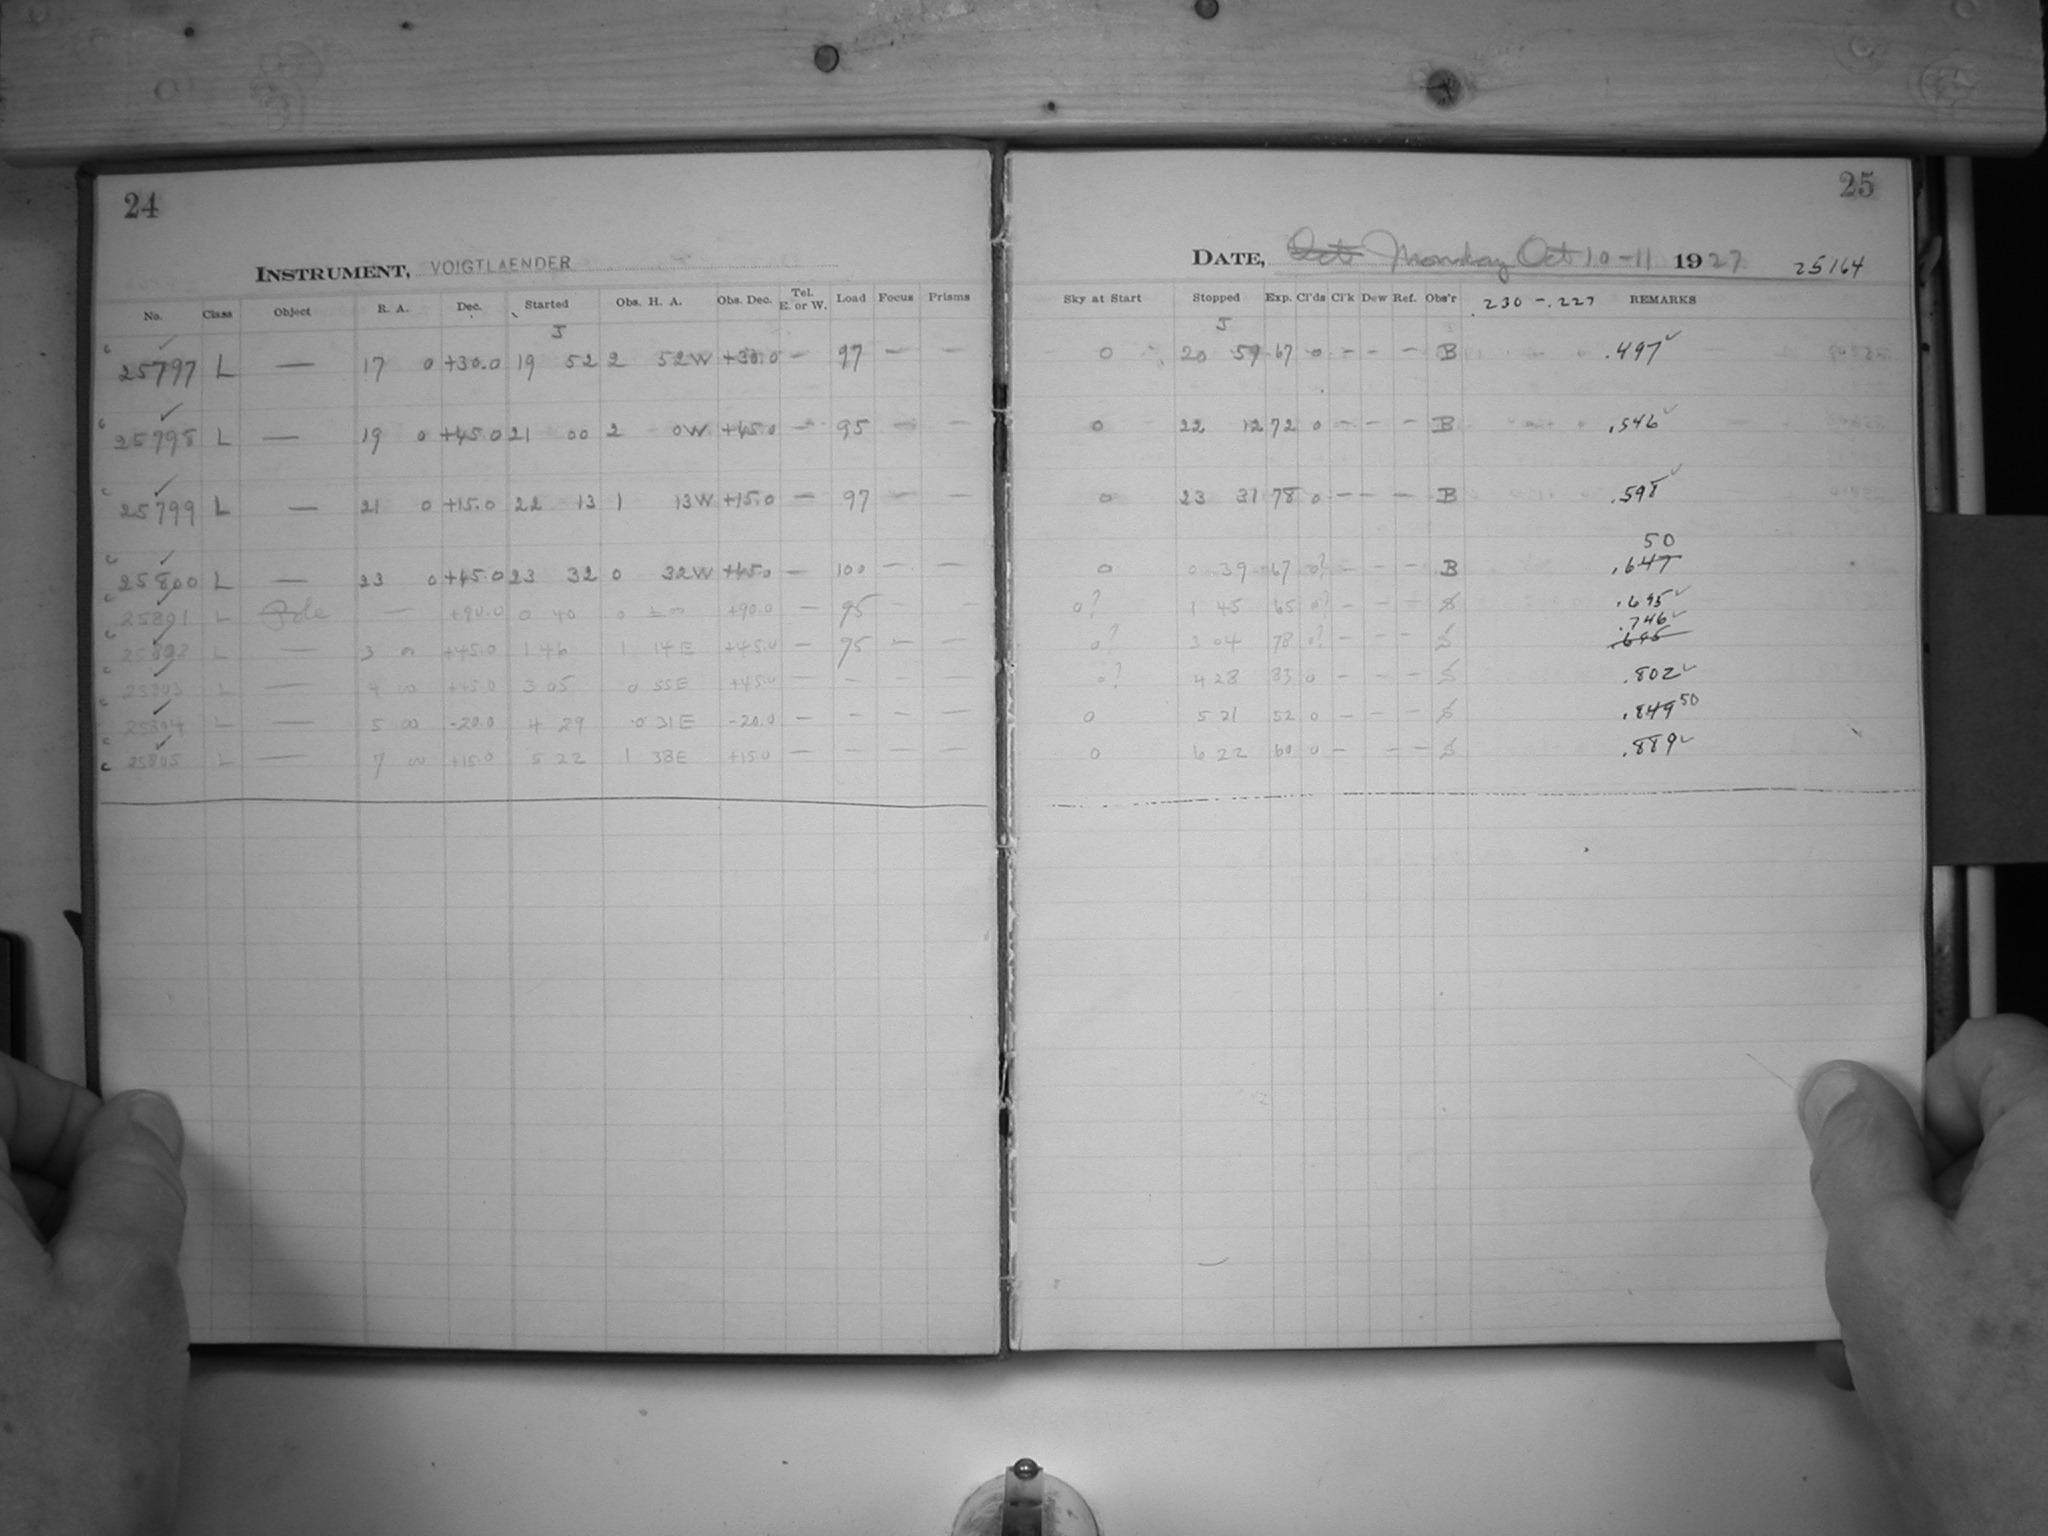 24
INSTRUMENT, VOIGTLAENDER
No. Class Object R. A. Dec. Started Obs. H. A. Obs. Dec. Tel. E. or W. Load Focus Prisms
J
25797 L — 17 0 +30.0 19 52 2 52W +30.0 — 97 — —
25798 L — 19 0 +45.0 21 00 2 0W +45.0 — 95 — —
25799 L — 21 0 +15.0 22 13 1 13W +15.0 — 97 — —
25800 L — 23 0 +45.0 23 32 0 32W +45.0 — 100 — —
25801 L Pole — +90.0 0 40 0 +90.0 — 95 — —
25802 L — 3 00 +45.0 1 46 1 14E +45.0 — 95 — —
25803 L — 4 00 +45.0 3 05 0 55E +45.0 — — — —
25804 L — 5 00 -20.0 4 29 0 31E -20.0 — — — —
25805 L — 7 00 +15.0 5 22 1 38E +15.0 — — — —
25
DATE, Oct Monday Oct 10-11 1927 25164
Sky at Start Stopped Exp. Cl'ds Cl'k Dew Ref. Obs'r .230 - .227 REMARKS
J
0 20 59 67 0 — — — B .497
0 22 12 72 0 — — — B .546
0 23 31 78 0 — — — B .598
50
0 0 39 67 0? — — — B .647
0? 1 45 65 0? — — — S .695
.746
0? 3 04 78 0? — — — S .695
0? 4 28 83 0 — — — S .802
0 5 21 52 0 — — — S .849 50
0 6 22 60 0 — — — S .889